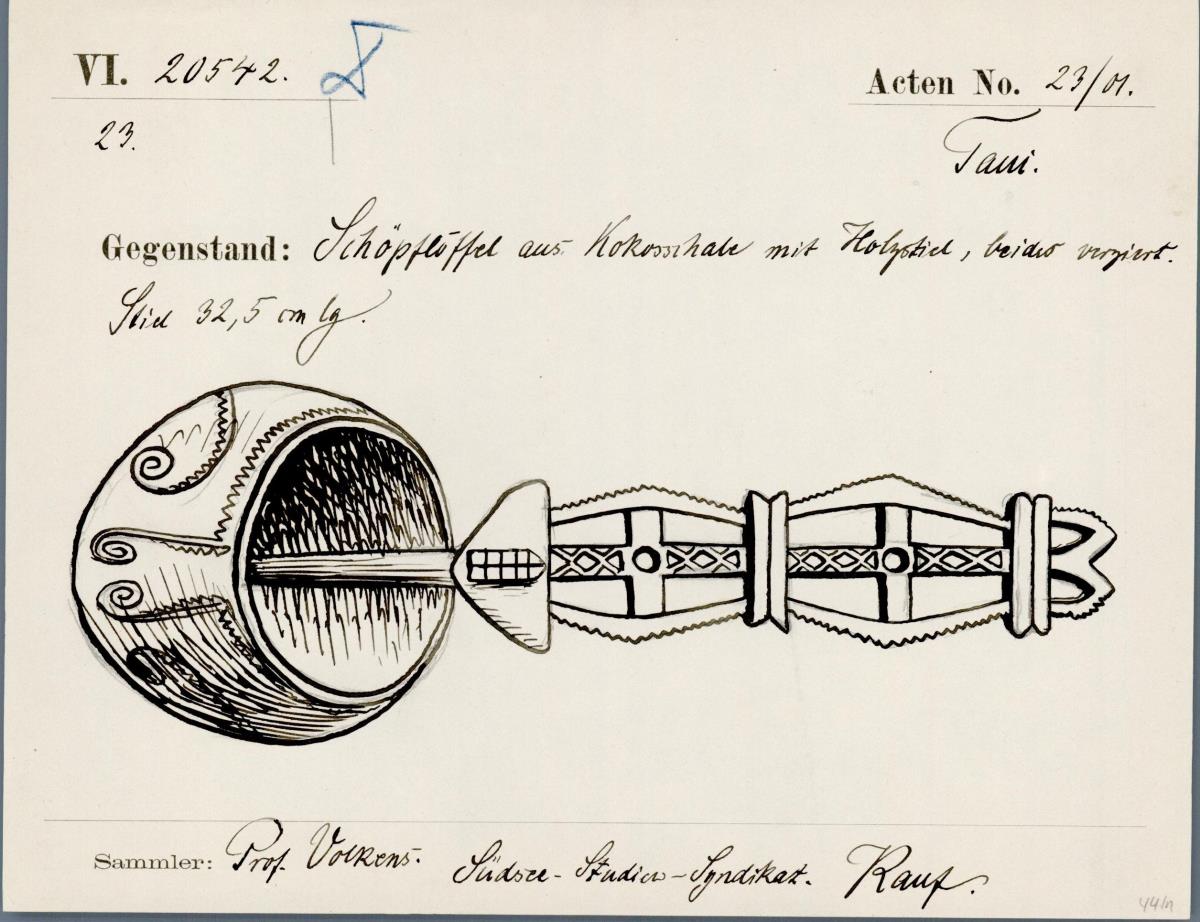 VI. 20542.
Acten No. 23/01.
23.
Taui.
Gegenstand: Schöpflöffel aus Kokosschale mit Holzstiel, beides verziert.
Stiel 32,5 cm lg.
Sammler: Prof. Volkens. Südsee-Studien-Syndikat. Kauf.